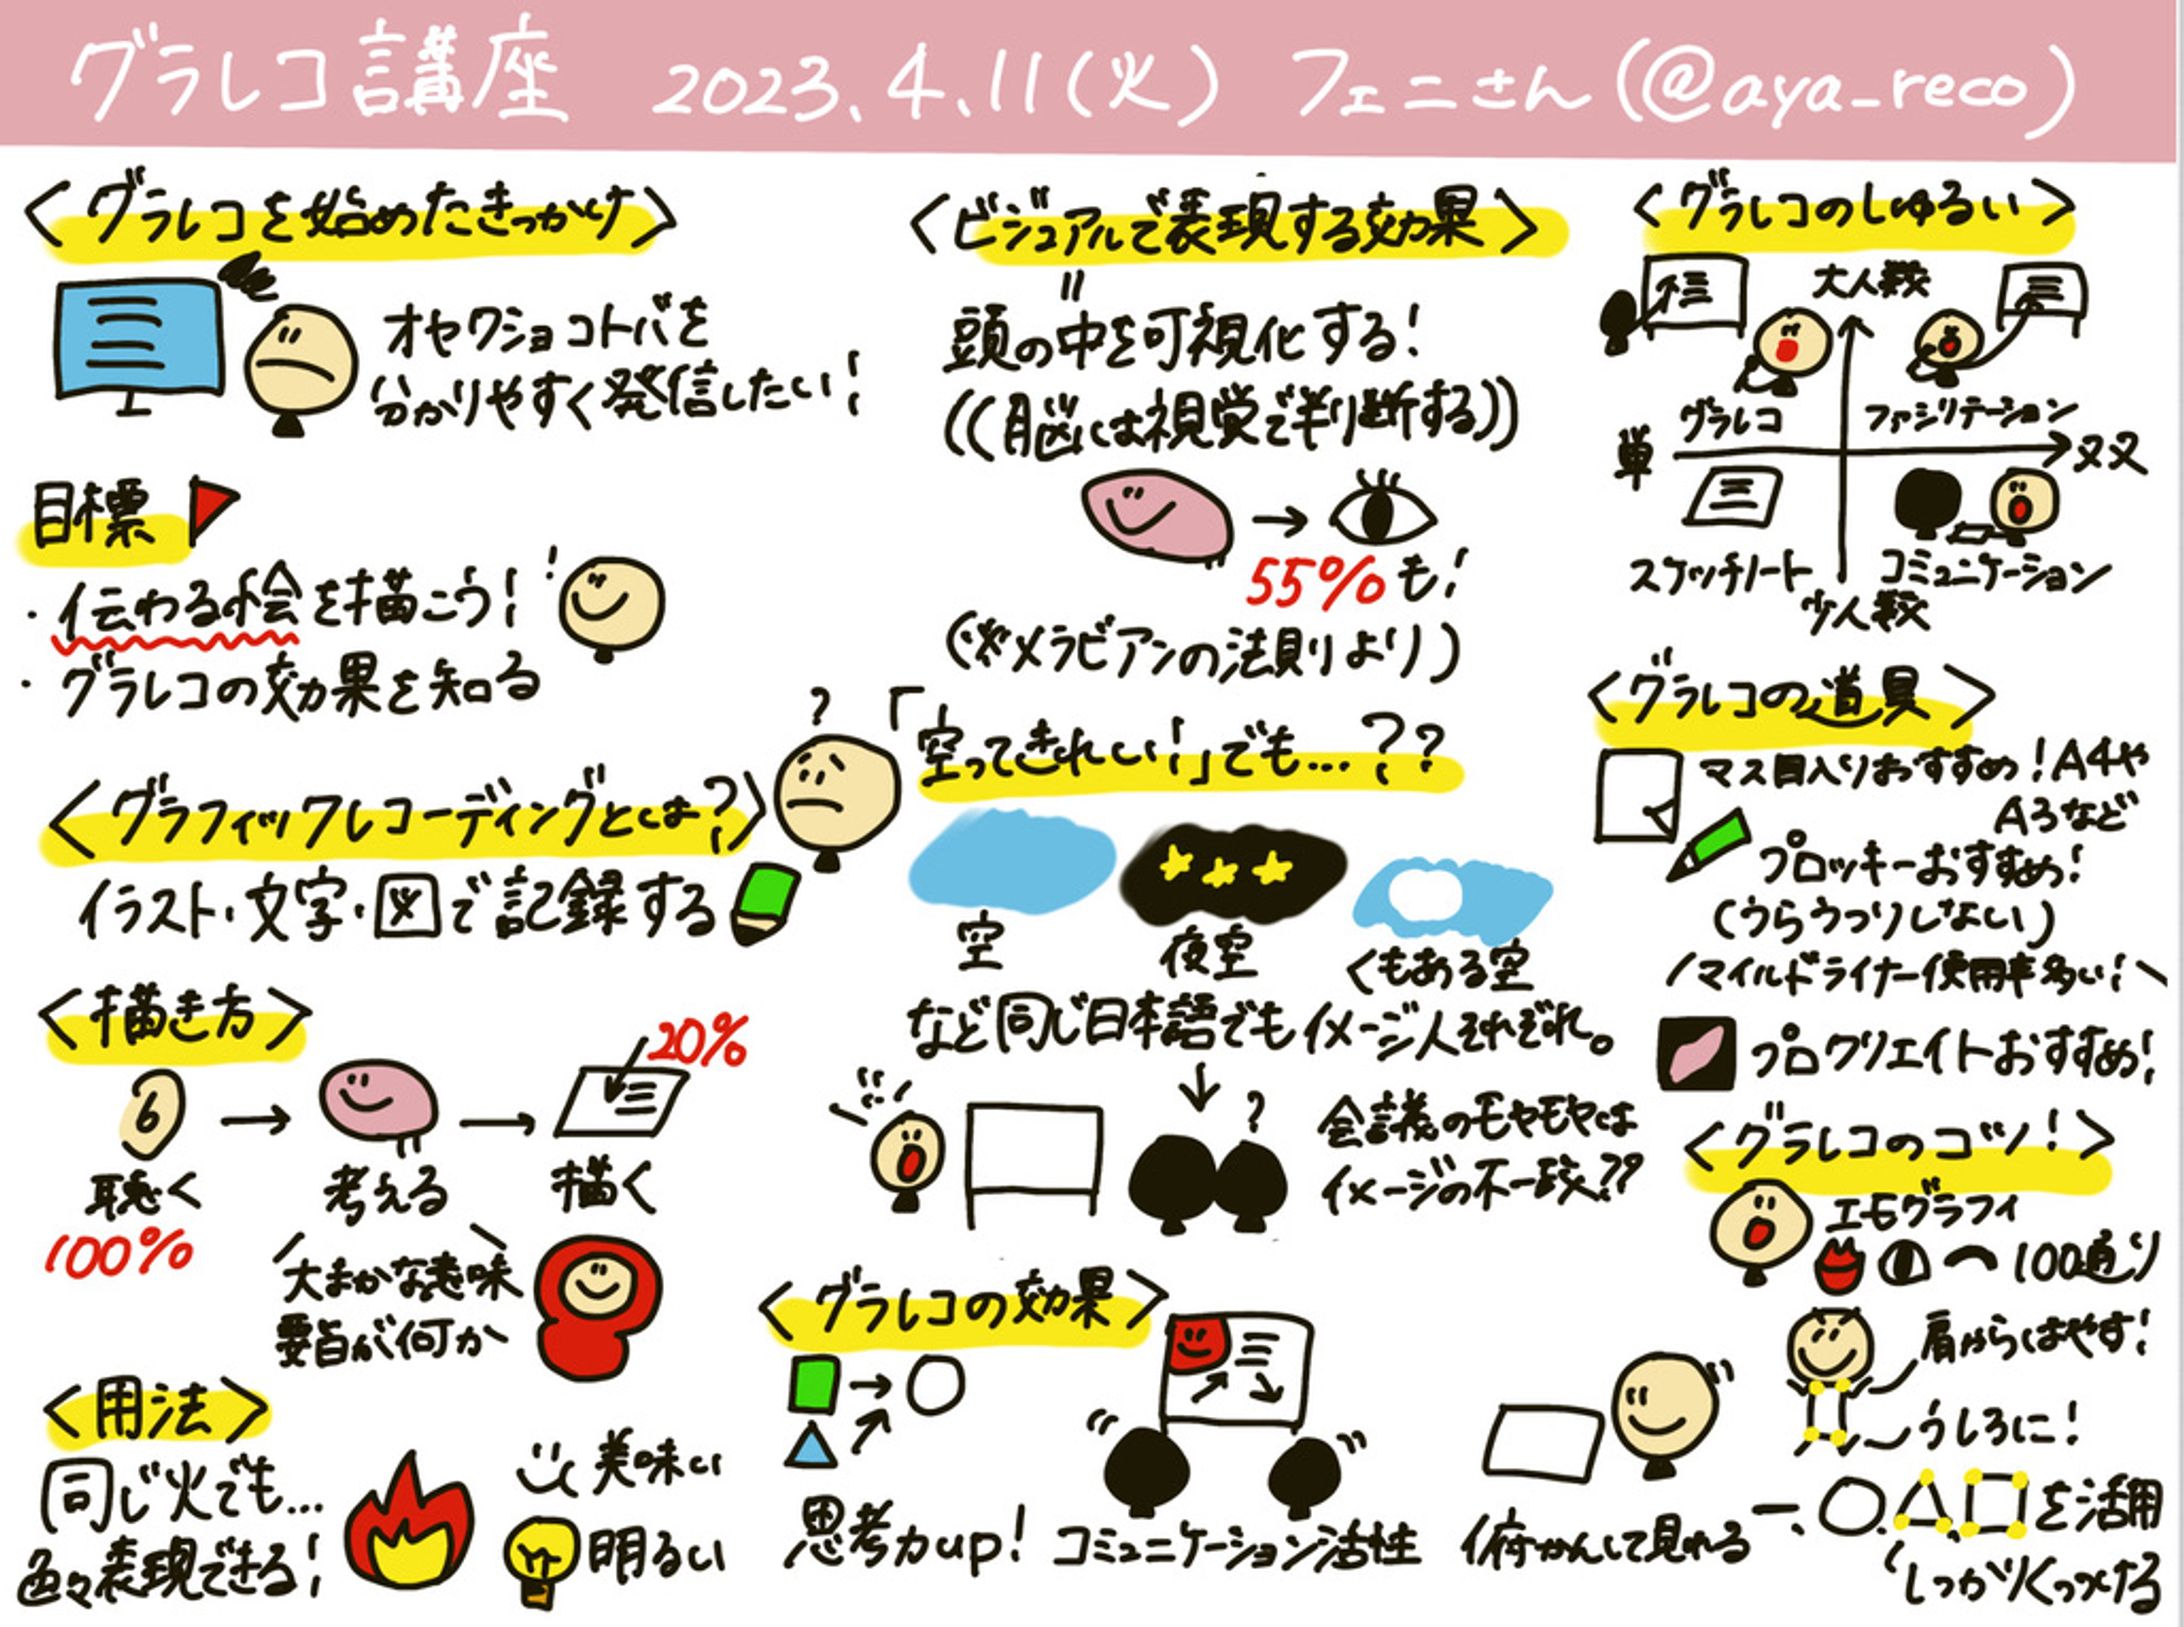 グラレコ講座 2023.4.11(火) フェニさん(@aya_reco)
<グラレコを始めたきっかけ>
オセワショコトバを
分かりやすく発信したい!
目標
・伝わる絵を描こう!
・グラレコの効果を知る
<グラフィックレコーディングとは?>
?
イラスト・文字・図で記録する
<描き方>
20%
聴く
考える
描く
100%
大まかな意味
要旨が何か
<用法>
同じ火でも…
色々表現できる!
美味い
明るい
<ビジュアルで表現する効果>
=
頭の中を可視化する!
((脳には視覚で判断する))
55%も!
(※メラビアンの法則より)
「空ってきれい!」でも…??
空
夜空
くもある空
など同じ日本語でもイメージ人それぞれ。
?
会議のモヤモヤは
イメージの不一致??
<グラレコの効果>
思考力up!
コミュニケーション活性
俯かんして見れる
<グラレコのしゅるい>
大人数
グラレコ
ファシリテーション
単
双
スケッチノート
コミュニケーション
少人数
<グラレコの道具>
マス目入りおすすめ!A4や
A3など
プロッキーおすすめ!
(うらうつりしない)
マイルドライナー使用率多い!
プロクリエイトおすすめ!
<グラレコのコツ!>
エモグラフィ
100通り
肩からはやす!
うしろに!
ー、○、△、□を活用
しっかりくっつける